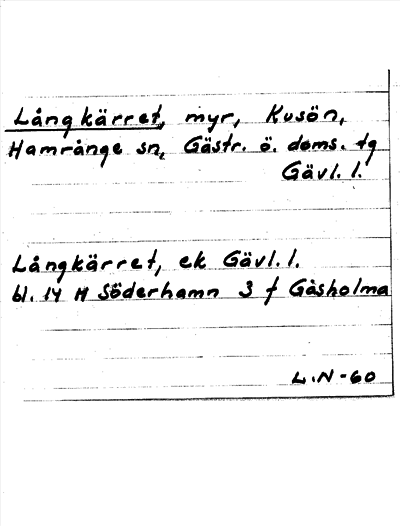 Långkärret, myr, Kusön,
Hamrånge sn, Gästr. ö. doms. tg
Gävl. l.
Långkärret, ek Gävl. l.
bl. 14 H Söderhamn 3 f Gåsholma
L.N-60